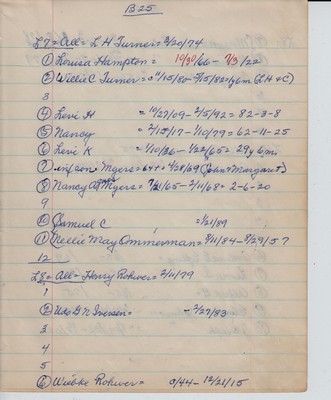 B25
L7 = All = L H Turner = 2/20/74
① Lovisa Hampton = 10/30/66 - 7/3/22
② Willie C Turner = 11/15/80 - 5/15/82 = 1y6m (L H + C)
3
④ Levi H = 11/27/09 - 2/5/92 = 82-3-8
⑤ Nancy = 2/15/17 - 1/10/79 = 62-11-25
⑥ Levi K = 1/10/36 - 1/22/65 = 29y 6m.
⑦ inf. son Myers = 11/28/69 (John & Margaret)
⑧ Nancy A Myers = 7/21/65 - 2/11/68 = 2-6-20
9
⑩ Samuel C = 1/21/89
⑪ Nellie May Ommerman = 9/11/84 - 8/29/57
12
L8 = All = Henry Rohwer = 2/11/79
1
② Udo G N Iversen = - 2/27/83
3
4
5
⑥ Wiebke Rohwer = 0/44 - 12/21/15